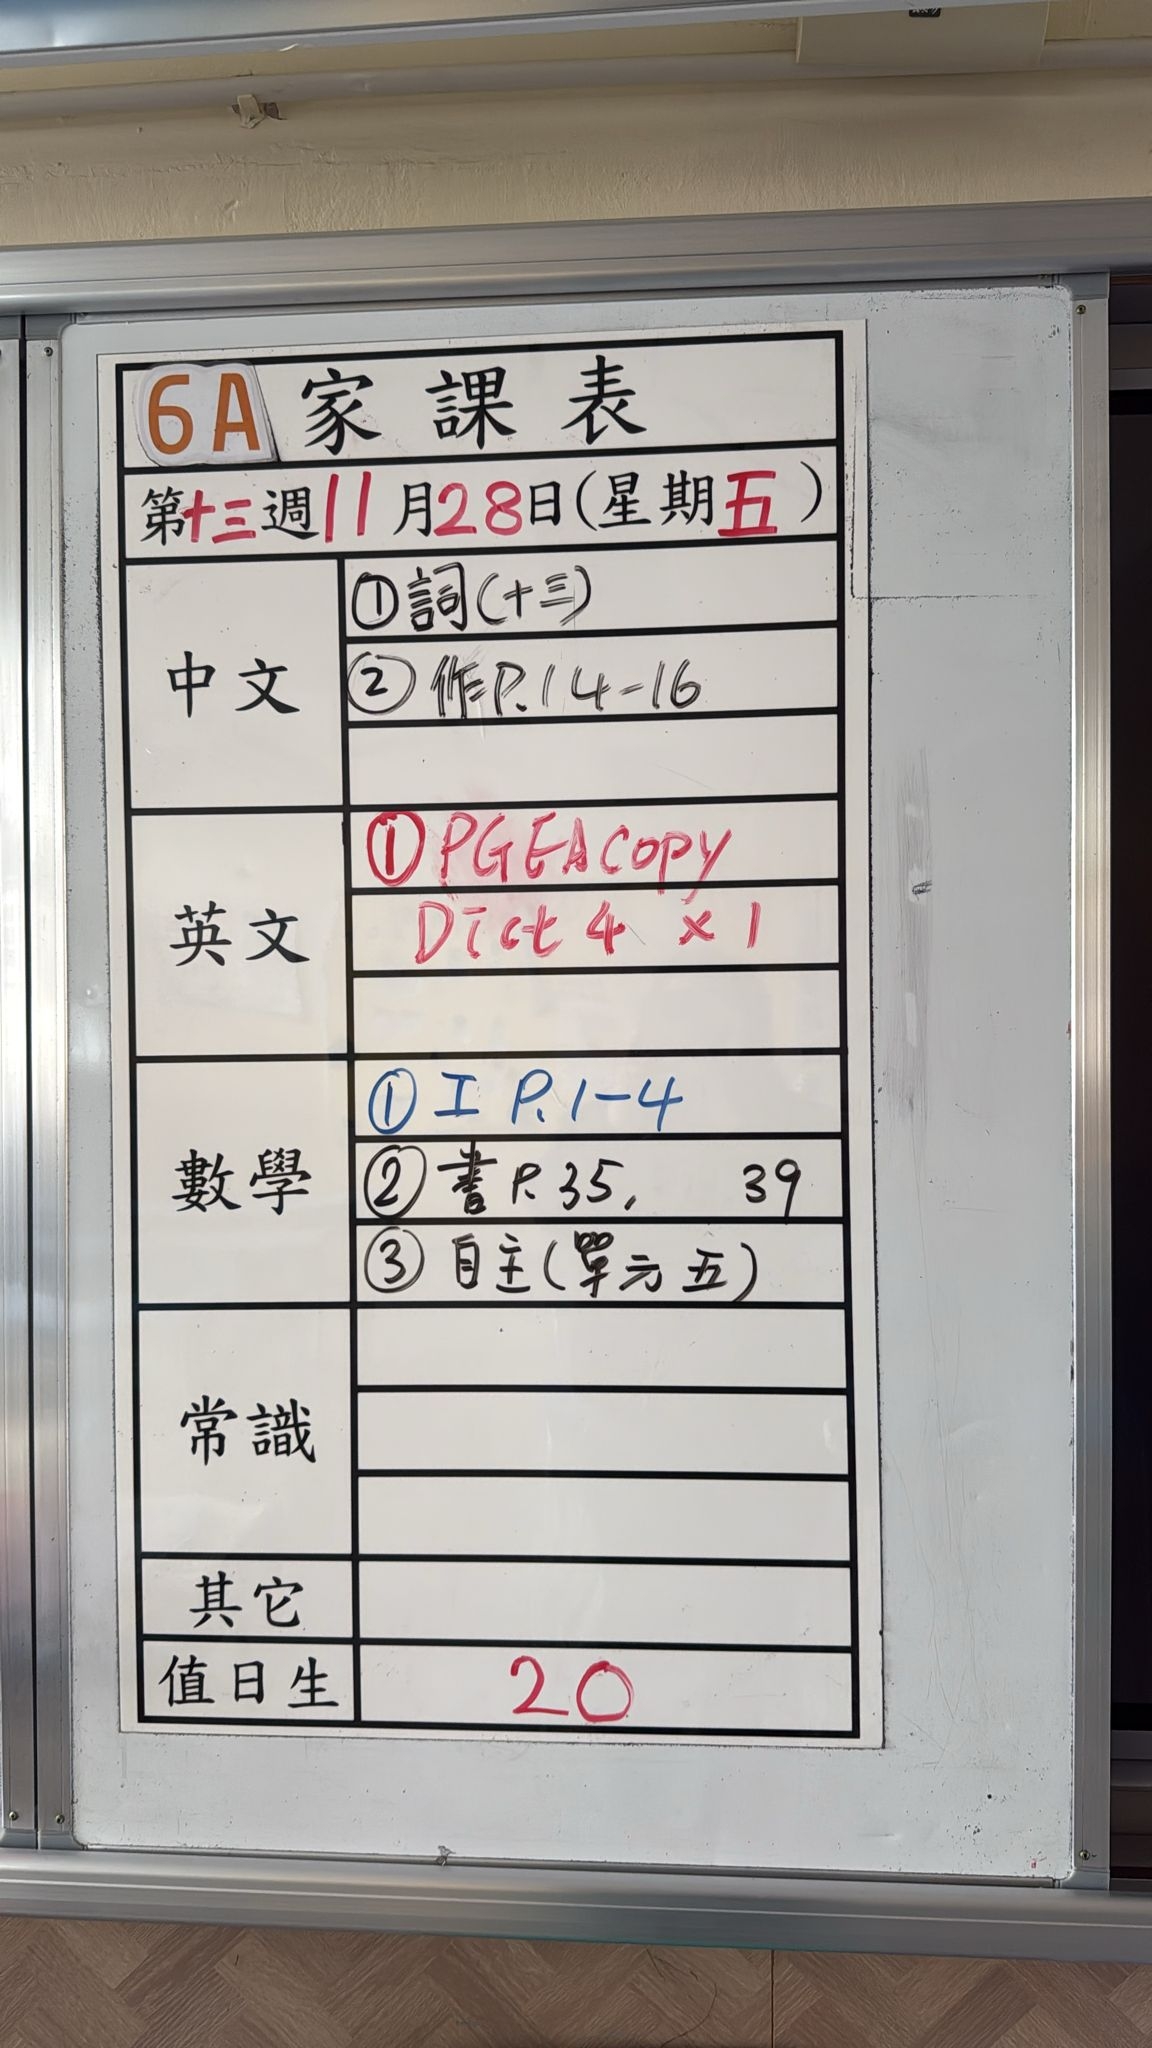 6A 家課表
第十三週11月28日(星期五)
中文
①詞(十三)
②作P.14-16
英文
①PGEA copy
Dict 4 × 1
數學
①工 P.1-4
②書P.35, 39
③自主(單元五)
常識
其它
值日生
20